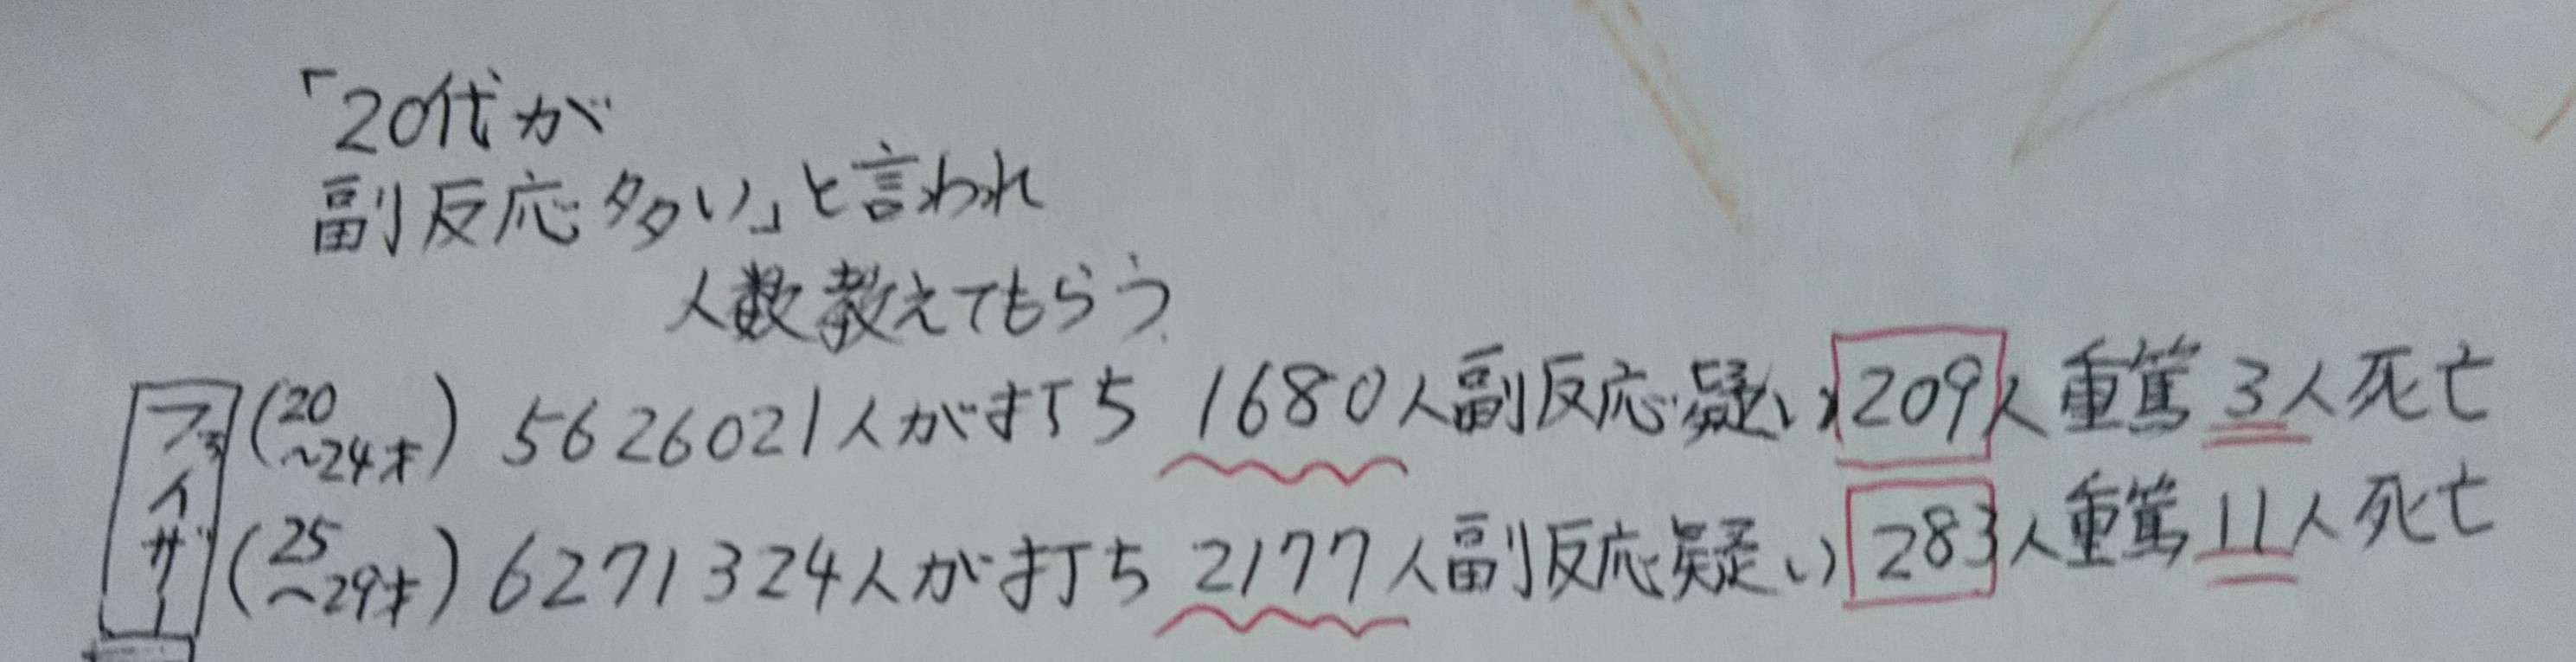 「20代が
副反応多い」と言われ
人数教えてもらう
ファイザー
(20～24才) 5626021人が打ち 1680人副反応疑い 209人重篤 3人死亡
(25～29才) 6271324人が打ち 2177人副反応疑い 283人重篤 11人死亡